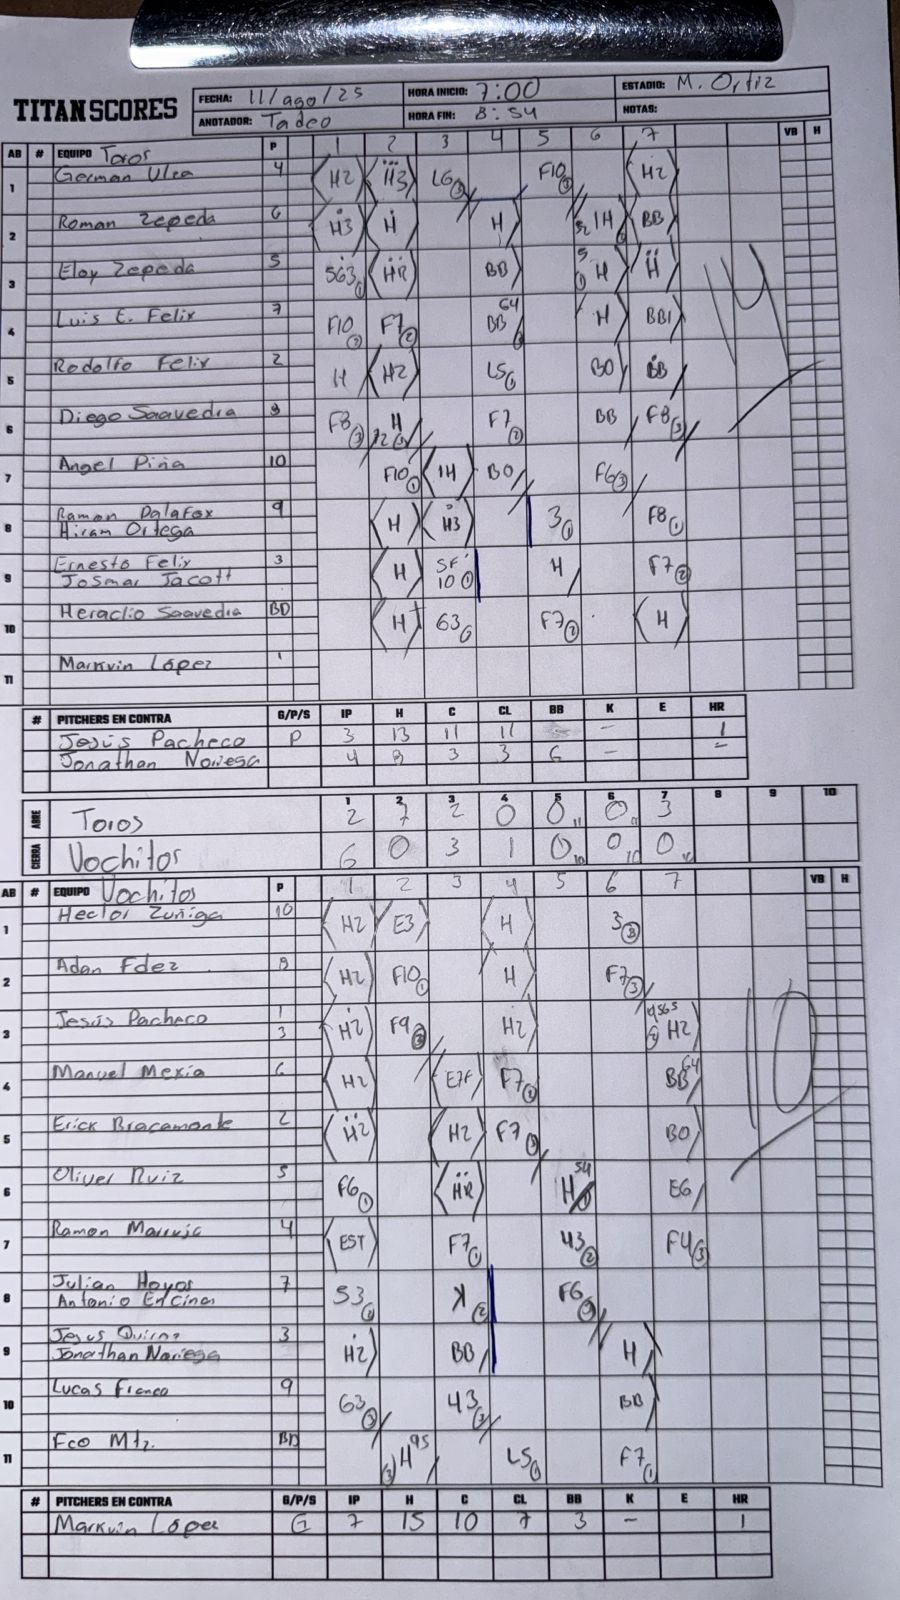 TITAN SCORES
FECHA: 11/ago/25 HORA INICIO: 7:00 ESTADIO: M. Ortiz
ANOTADOR: Tadeo HORA FIN: 8:54 NOTAS:
AB # EQUIPO Toros P 1 2 3 4 5 6 7 VB H
1 German Ulea 4 H2 H3 L6 F10 H2
2 Roman Zepeda 6 H3 H H 1H BB
3 Eloy Zepeda 5 563 HR BB H H
4 Luis E. Felix 7 F10 F7 BB 64 H BB1
5 Rodolfo Felix 2 H H2 L5 BO BB
6 Diego Saavedra 8 F8 H F7 BB F8
7 Angel Piña 10 F10 1H BO F6
8 Ramon Palafox 9 H H3 3 F8
Hiram Ortega
9 Ernesto Felix 3 H SF 10 H F7
Josmar Jacott
10 Heraclio Saavedra BD H 63 F7 H
11 Markvin López 1
14
# PITCHERS EN CONTRA G/P/S IP H C CL BB K E HR
Jesús Pacheco P 3 13 11 11 - 1
Jonathan Noriega 4 8 3 3 6 - -
1 2 3 4 5 6 7 8 9 10
ABRE Toros 2 7 2 0 0 0 3
CIERRA Vochitos 6 0 3 1 0 0 0
AB # EQUIPO Vochitos P 1 2 3 4 5 6 7 VB H
1 Hector Zuñiga 10 H2 E3 H 3
2 Adan Fdez 8 H2 F10 H F7
3 Jesús Pacheco 1 3 H2 F9 H2 H2
4 Manuel Mexia 6 H2 E7F F7 BB 64
5 Erick Bracamonte 2 H2 H2 F7 BO
6 Oliver Ruiz 5 F6 HR H 54 E6
7 Ramon 4 EST F7 43 F4
8 Julian Hoyos 7 53 K F6
Antonio Encinas
9 Jesus 3 H2 BB H
Jonathan Noriega
10 Lucas Franco 9 63 43 BB
11 Fco Mtz. BD H 95 L5 F7
10
# PITCHERS EN CONTRA G/P/S IP H C CL BB K E HR
Markvin López G 7 15 10 7 3 - 1